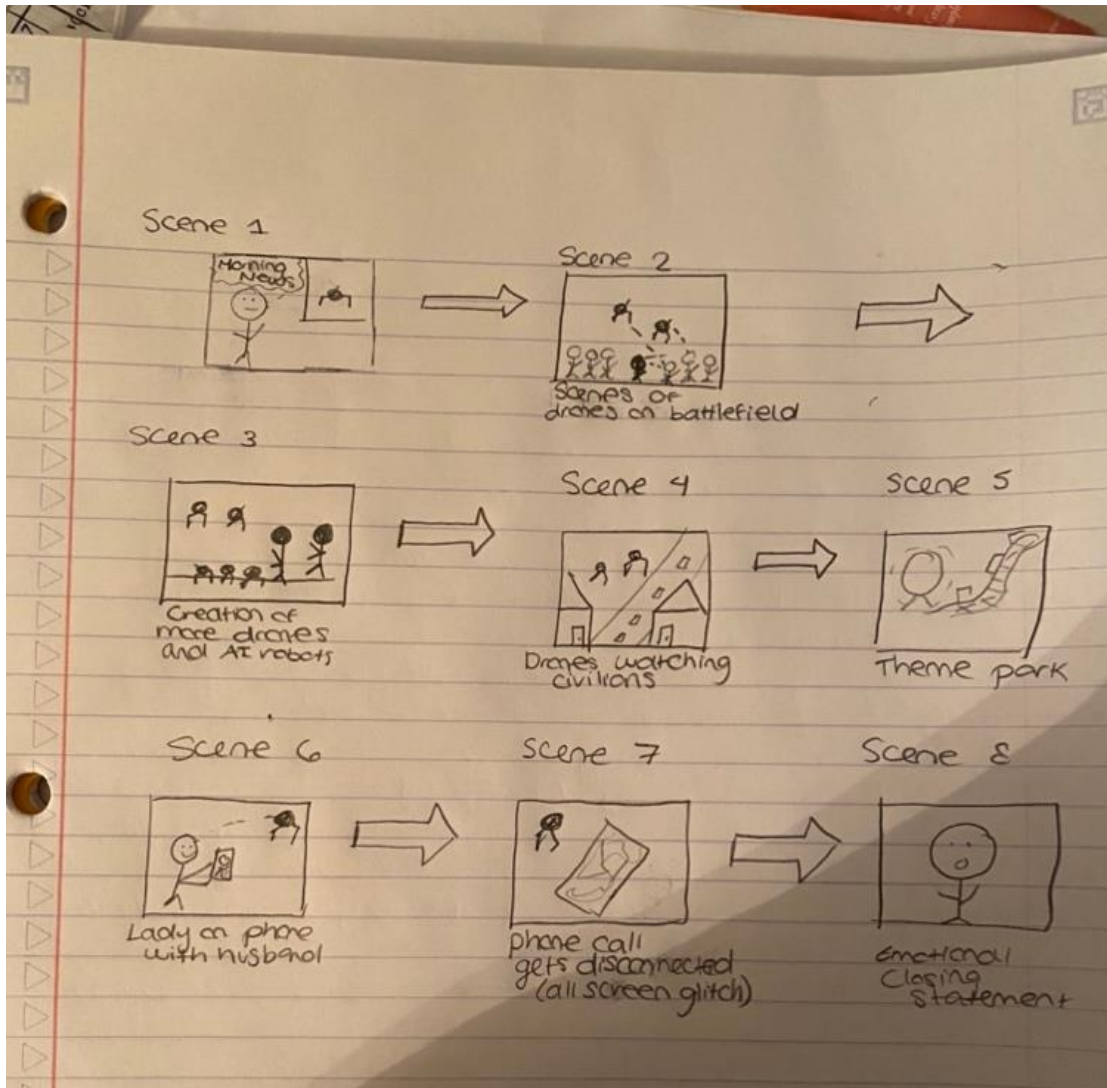 Scene 1
Morning
News
Scene 2
Scenes of
drones on battlefield
Scene 3
Creation of
more drones
and AI robots
Scene 4
Drones watching
civilions
Scene 5
Theme park
Scene 6
Lady on phone
with husband
Scene 7
phone call
gets disconnected
(all screen glitch)
Scene 8
Emotional
Closing
Statement